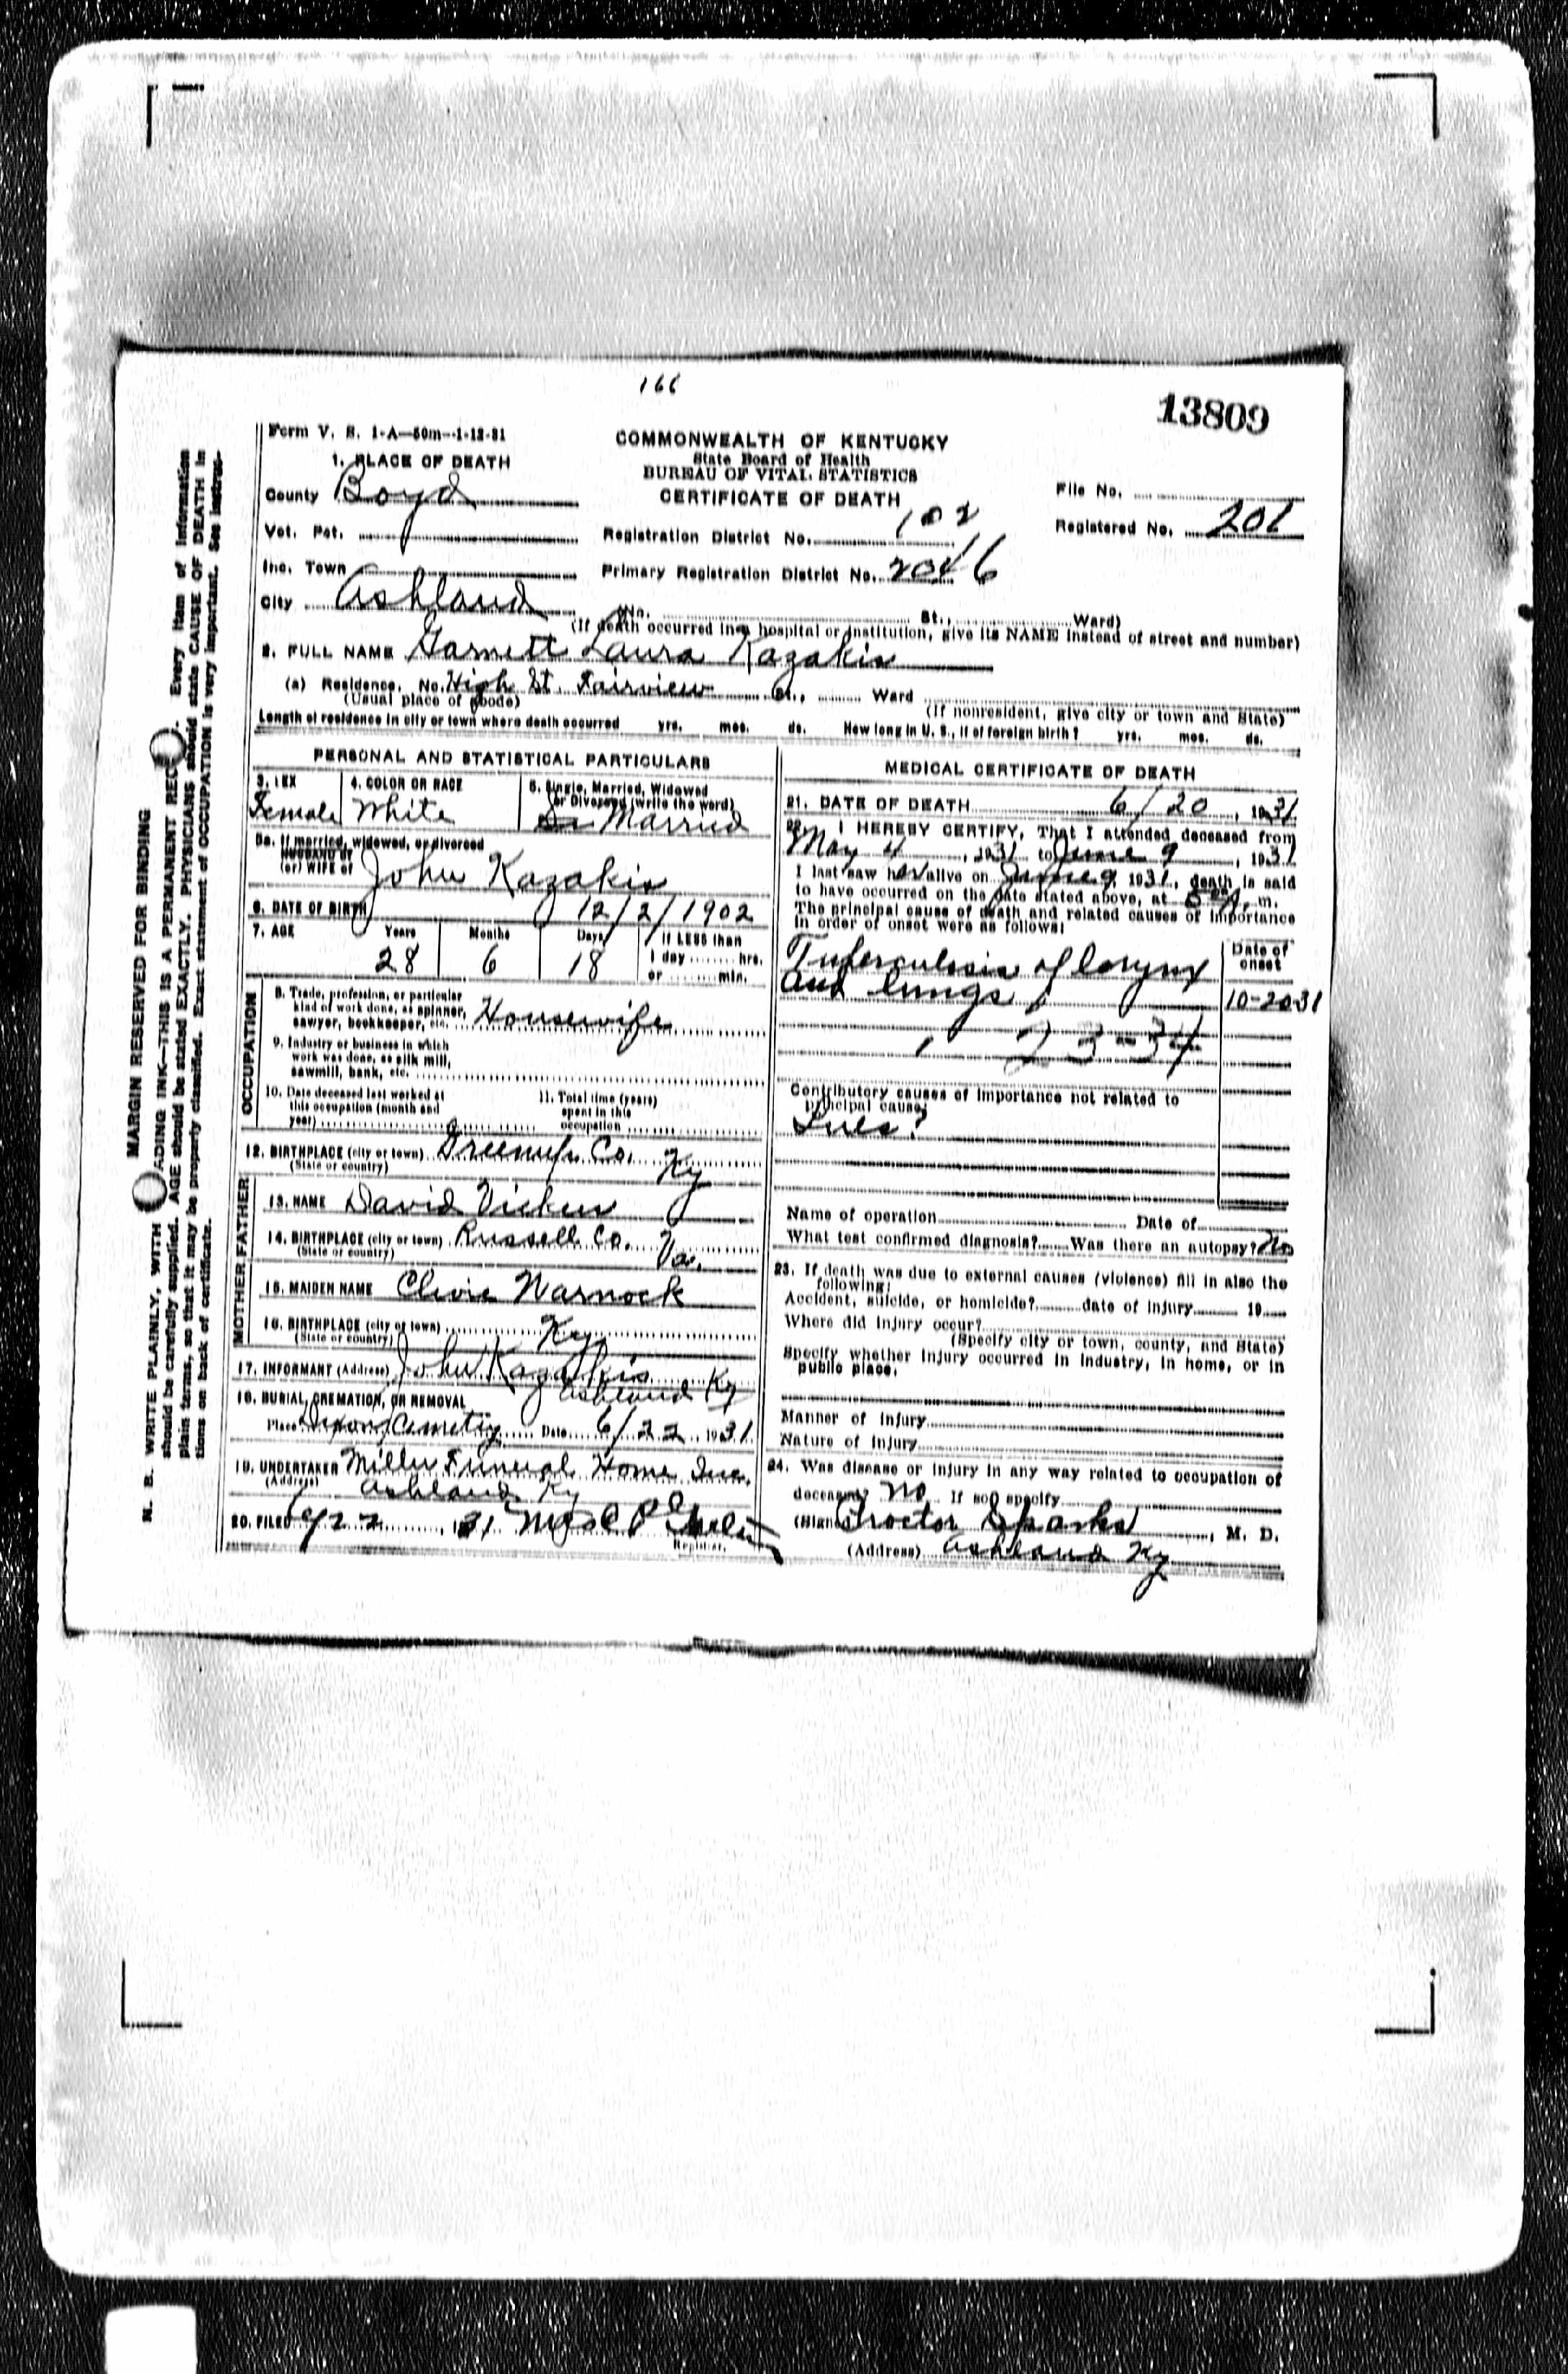 166
13809
Form V. S. 1-A—50m—1-12-31
COMMONWEALTH OF KENTUCKY
State Board of Health
BUREAU OF VITAL STATISTICS
CERTIFICATE OF DEATH
1. PLACE OF DEATH
County Boyd
File No.
Vot. Pct.
Registration District No. 102
Registered No. 201
Inc. Town
Primary Registration District No. 2046
City Ashland (No. St., Ward)
(If death occurred in a hospital or institution, give its NAME instead of street and number)
2. FULL NAME Garnett Laura Kazakis
(a) Residence. No. High St. Fairview St., Ward
(Usual place of abode) (If nonresident, give city or town and State)
Length of residence in city or town where death occurred yrs. mos. ds. How long in U. S., if of foreign birth? yrs. mos. ds.
PERSONAL AND STATISTICAL PARTICULARS
3. SEX 4. COLOR OR RACE 5. Single, Married, Widowed
or Divorced (write the word)
Female White Married
5a. If married, widowed, or divorced
HUSBAND of
(or) WIFE of John Kazakis
6. DATE OF BIRTH 12/2/1902
7. AGE Years Months Days If LESS than
28 6 18 1 day hrs.
or min.
OCCUPATION
8. Trade, profession, or particular
kind of work done, as spinner,
sawyer, bookkeeper, etc. Housewife
9. Industry or business in which
work was done, as silk mill,
sawmill, bank, etc.
10. Date deceased last worked at
this occupation (month and
year)
11. Total time (years)
spent in this
occupation
12. BIRTHPLACE (city or town) Greenup Co. Ky
(State or country)
FATHER
13. NAME David Vickers
14. BIRTHPLACE (city or town) Russell Co. Va.
(State or country)
MOTHER
15. MAIDEN NAME Clivie Warnock
16. BIRTHPLACE (city or town) Ky
(State or country)
17. INFORMANT (Address) John Kazakis
Ashland Ky
18. BURIAL, CREMATION, OR REMOVAL
Place Cemetry Date 6/22 1931
19. UNDERTAKER Miller Funeral Home Inc.
(Address) Ashland Ky
20. FILED 31 Mrs C P
Registrar.
MEDICAL CERTIFICATE OF DEATH
21. DATE OF DEATH 6/20, 1931
22. I HEREBY CERTIFY, That I attended deceased from
May 4, 1931 to June 9, 1931
I last saw her alive on June 9, 1931, death is said
to have occurred on the date stated above, at m.
The principal cause of death and related causes of importance
in order of onset were as follows:
Date of
onset
Tuberculosis of larynx
and lungs 10-20-31
23-34
Contributory causes of importance not related to
principal cause:
Lues?
Name of operation Date of
What test confirmed diagnosis? Was there an autopsy? No
23. If death was due to external causes (violence) fill in also the
following:
Accident, suicide, or homicide? date of injury 19
Where did injury occur?
(Specify city or town, county, and State)
Specify whether injury occurred in industry, in home, or in
public place.
Manner of Injury
Nature of Injury
24. Was disease or injury in any way related to occupation of
deceased? No If so, specify
(Sign) Proctor Sparks, M. D.
(Address) Ashland Ky
MARGIN RESERVED FOR BINDING
N. B. WRITE PLAINLY, WITH ADING INK—THIS IS A PERMANENT REC. Every item of information
should be carefully supplied. AGE should be stated EXACTLY. PHYSICIANS should state CAUSE OF DEATH in
plain terms, so that it may be properly classified. Exact statement of OCCUPATION is very important. See instruc-
tions on back of certificate.